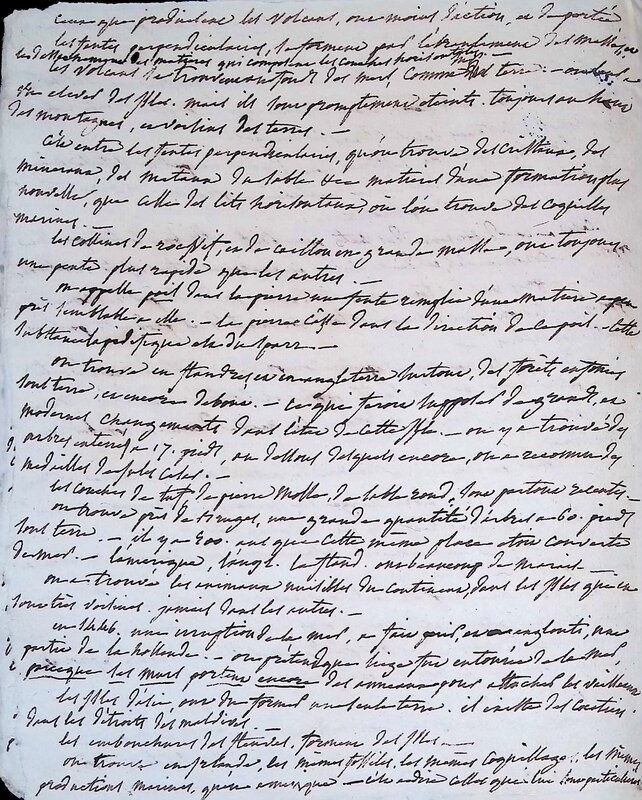 Ceux que produisent les volcans, ont moins d'action, et de portée
les fentes perpendiculaires, se forment par des matières qui composent les couches horisontales
les volcans se trouvent au fond des mers, comme sur terre. — on
vu élever des isles. mais ils sont promptement éteints. toujours au haut
des montagnes, et voisins des terres. —
C'est entre les fentes perpendiculaires, qu'on trouve des cristaux, des
mineraux, des metaux du sable &c matieres d'une formation plus
nouvelle, que celle des lits horisontaux, où l'on trouve des coquilles
marines. —
les collines de roc vif, et de caillou en grande masse, ont toujours
une pente plus rapide que les autres. —
on appelle poil dans la pierre une fente remplie d'une matiere à peu
près semblable à elle. — la pierre casse dans la direction de ce poil. — cette
substance lapidifique est du sparr. —
on trouve en flandres et en angleterre surtout, des forêts enfouies
sous terre, et encore debout. — ce qui feroit supposer de grands, et
modernes changements dans l'état de cette isle. — on y a trouvé des
arbres enterrés à 17. pieds, au dessous desquels encore, on a reconnu des
medailles de jules Cesar. —
les couches de tuf, de pierre molle, de sable rond, sont partout recentes. —
on trouve près de Bruges, une grande quantité d'arbres à 60. pieds
sous terre. — il y a 500. ans que cette même place étoit couverte
de mer. — l'amerique, l'angl. la fland. ont beaucoup de marais. —
on a trouvé les animaux nuisibles du continent, dans les isles qui en
sont très voisines. jamais dans les autres. —
en 1446. une irruption de la mer, a fait périr, et a englouti, une
partie de la hollande. — on prétend que liege fut entourée de la mer,
parceque les murs portent encore des anneaux pour attacher les vaisseaux
les isles d'asie, ont du former une seule terre. il existe des cocotiers
dans les détroits des maldives. —
les embouchures des fleuves, forment des isles. —
on trouve en irlande, les mêmes fossiles, les mêmes coquillages, les mêmes
productions marines, qu'en amerique — c'est à dire celles qui lui sont particulieres